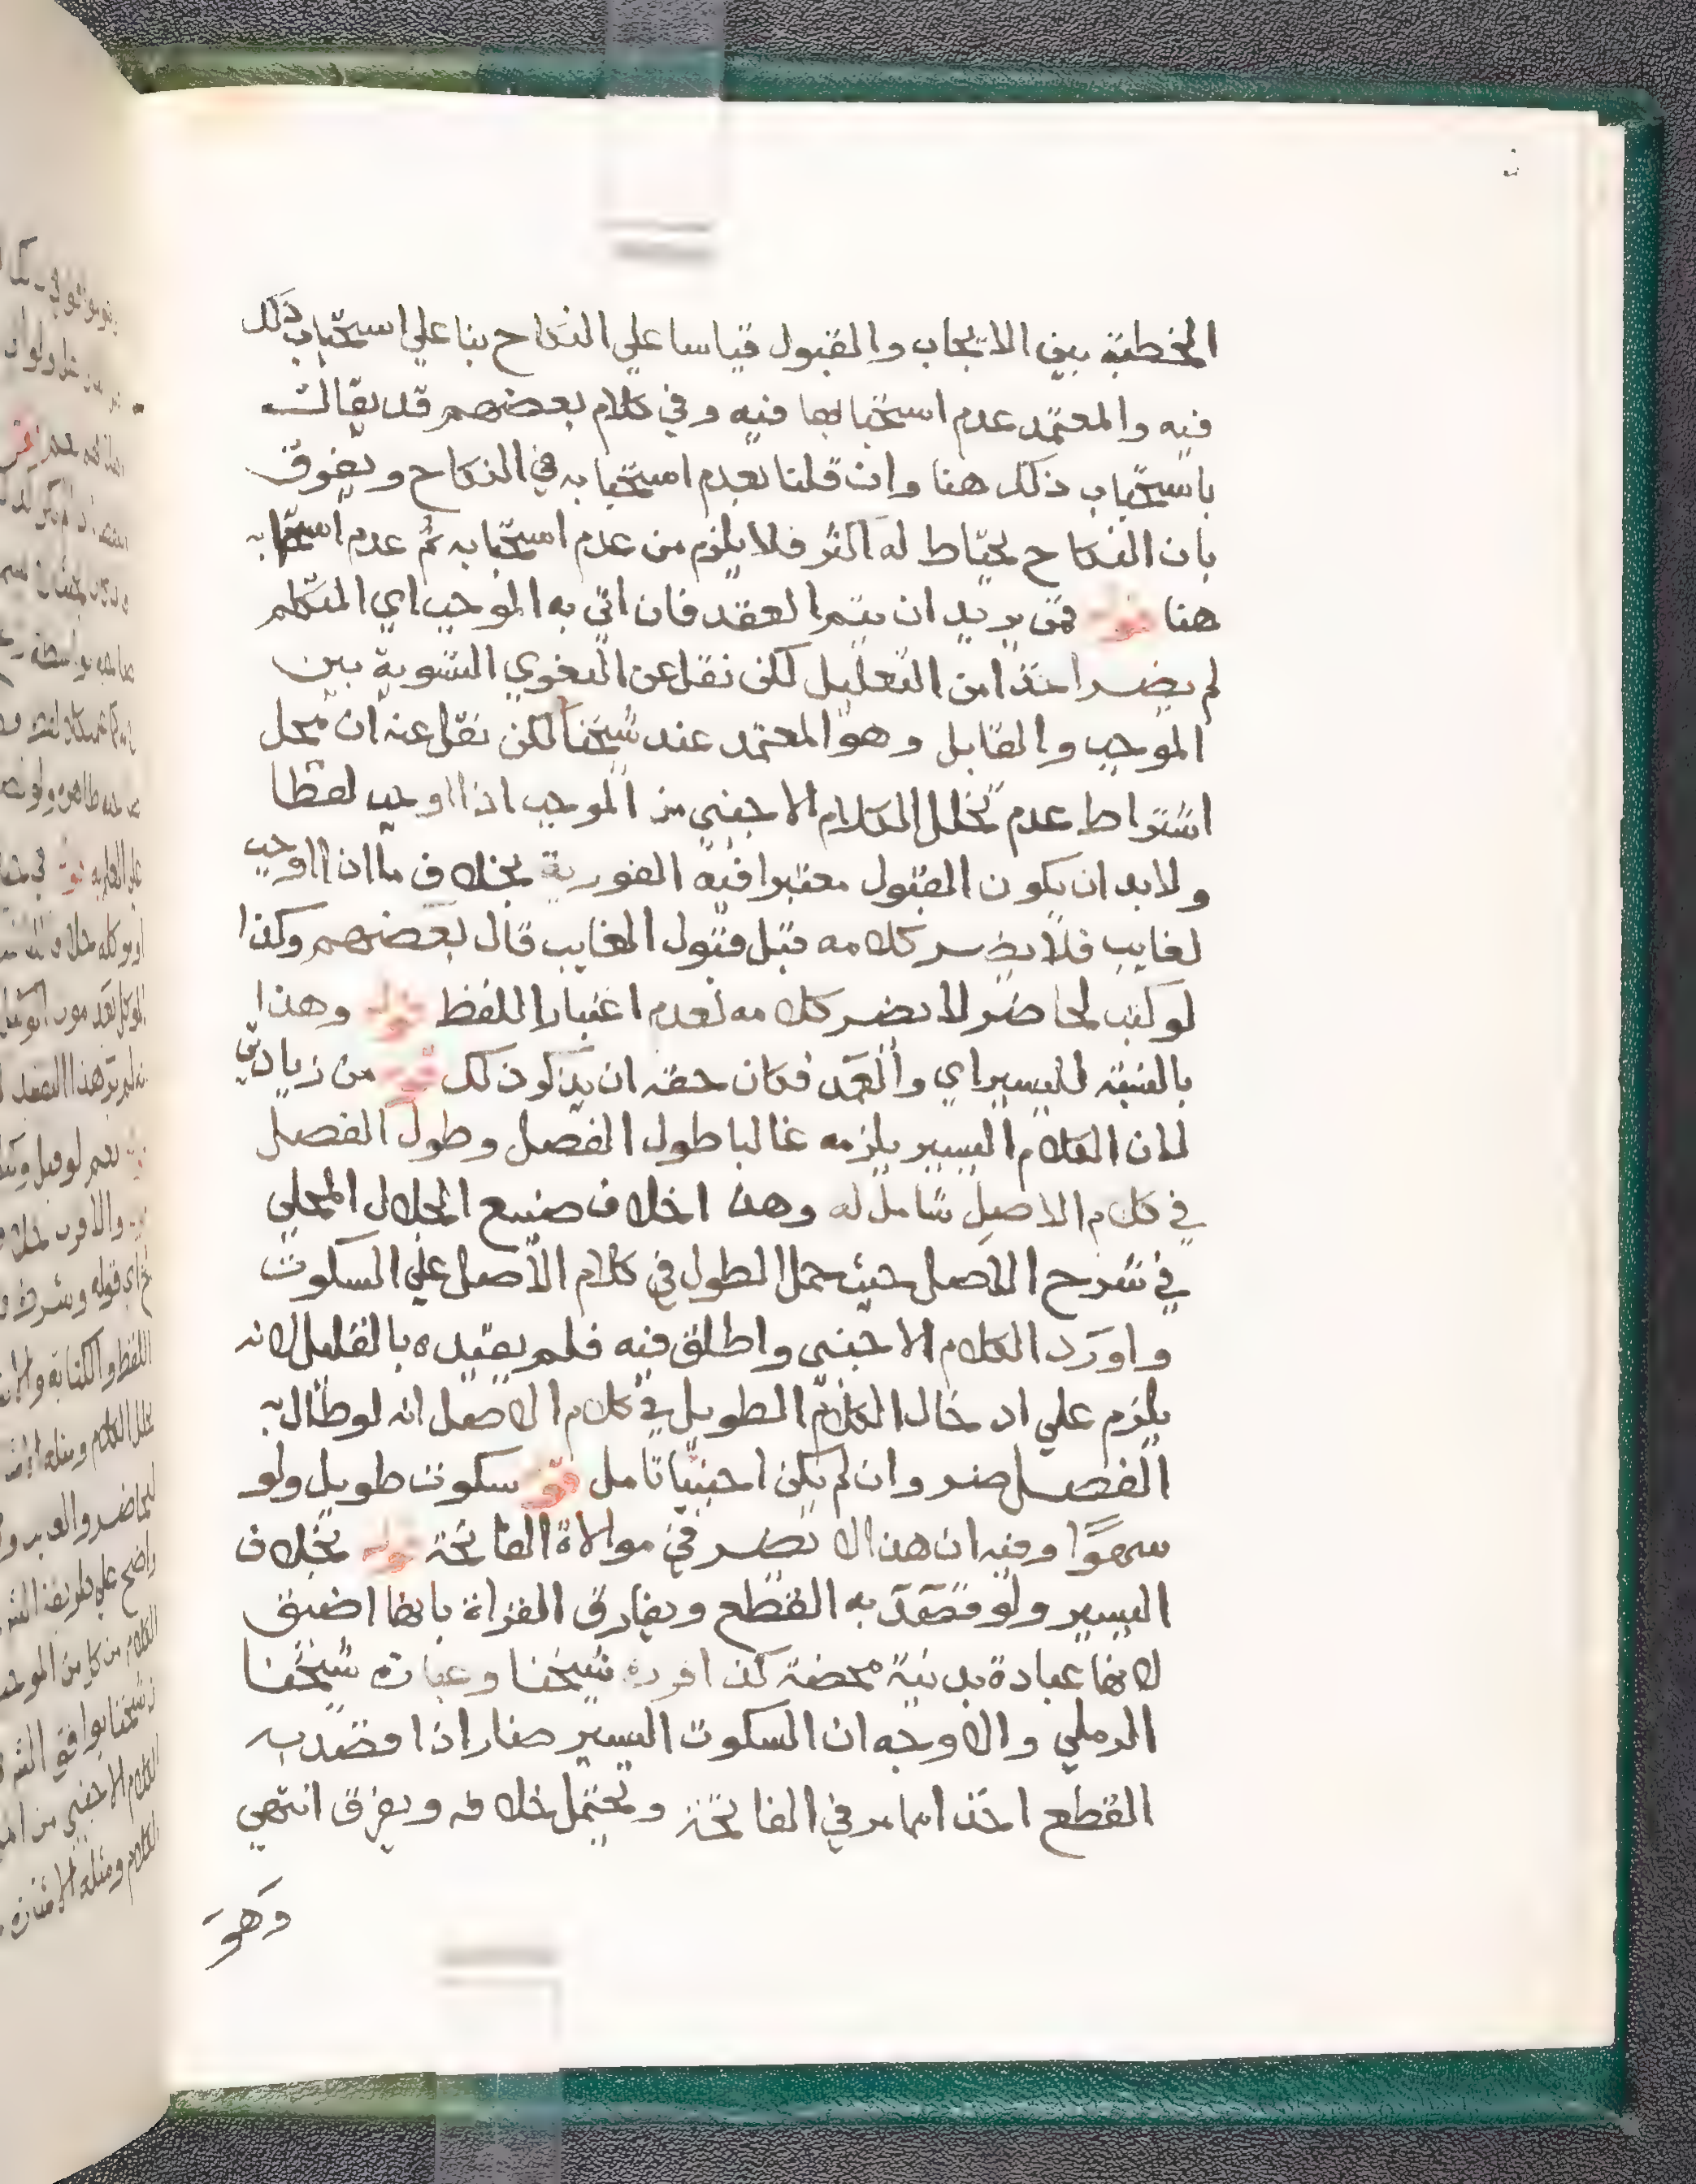 الخطبة بين الايجاب والقبول قياسا علي النكاح بنا علي استحباب ذلك
فيه والمعتمد عدم استحبابها فيه وفي كلام بعضهم قد يقال
باستحباب ذلك هنا وان قلنا بعدم استحبابه في النكاح ويفرق
بان النكاح يحتاط له اكثر فلا يلزم من عدم استحبابه ثم عدم استحبابه
هنا قوله ممن يريد ان يتم العقد فان اتي به الموجب اي المتكلم
لم يضر اخذا من التعليل لكن نقل عن البغوي التسوية بين
الموجب والقابل وهو المعتمد عند شيخنا لكن نقل عنه ان محل
اشتراط عدم تخلل الكلام الاجنبي من الموجب اذا اوجب لفظا
ولا بد ان يكون القبول معتبرا فيه الفورية بخلاف ما اذا اوجب
لغايب فلا يضر كلامه قبل قبول الغايب قال بعضهم وكذا
لو كتب لحاضر لا يضر كلامه لعدم اعتبار اللفظ قوله وهذا
بالنسبة لليسير اي والعمد فكان حقه ان يذكر ذلك قوله من زيادتي
لان الكلام اليسير يلزمه غالبا طول الفصل وطول الفصل
في كلام الاصل شامل له وهذا خلاف صنيع الجلال المحلي
في شرح الاصل حيث حمل الطول في كلام الاصل علي السكوت
واورد الكلام الاجنبي واطلق فيه فلم يقيده بالقليل لانه
يلزم علي ادخال الكلام الطويل في كلام الاصل انه لو طال به
الفصل ضر وان لم يكن اجنبيا تامل قوله سكوت طويل ولو
سهوا وفيه ان هذا لا يضر في موالاة الفاتحة قوله بخلاف
اليسير ولو قصد به القطع ويفارق القراة بانها اضيق
لانها عبادة بدنية محضة كذا افرده شيخنا وعبارة شيخنا
الرملي والاوجه ان السكوت اليسير ضار اذا قصد به
القطع اخذا مما مر في الفاتحة ويحتمل خلافه ويفرق انتهي
وهو